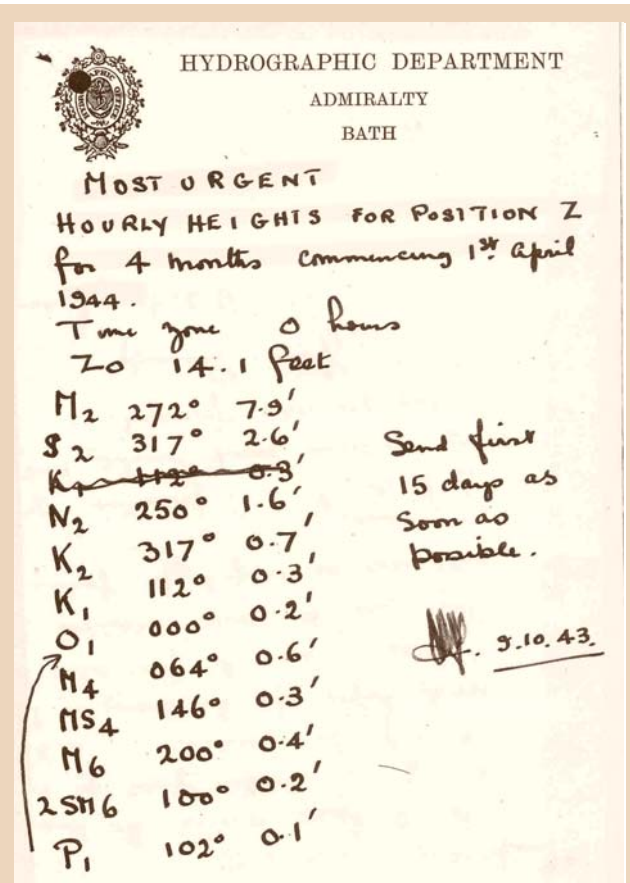 HYDROGRAPHIC DEPARTMENT
ADMIRALTY
BATH
MOST URGENT
HOURLY HEIGHTS FOR POSITION Z
for 4 months commencing 1st April
1944.
Time zone 0 hours
Z0 14.1 feet
M2 272° 7.9'
S2 317° 2.6'
K1 112° 0.3'
N2 250° 1.6'
K2 317° 0.7'
K1 112° 0.3'
O1 000° 0.2'
M4 064° 0.6'
MS4 146° 0.3'
M6 200° 0.4'
2SM6 100° 0.2'
P1 102° 0.1'
Send first
15 days as
soon as
possible.
9.10.43.